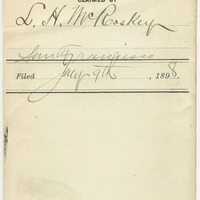 CLAIMED BY
L. H. McRoskey
San Francisco
Filed July 9th, 1898.